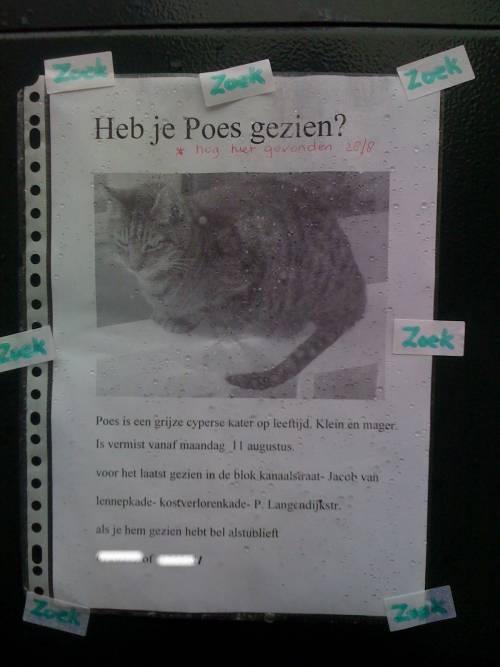 Zoek
Zoek
Zoek
Heb je Poes gezien?
* nog niet gevonden 28/8
Zoek
Zoek
Poes is een grijze cyperse kater op leeftijd. Klein en mager.
Is vermist vanaf maandag 11 augustus.
voor het laatst gezien in de blok kanaalstraat- Jacob van
lennepkade- kostverlorenkade- P. Langendijkstr.
als je hem gezien hebt bel alstublieft
of
Zoek
Zoek